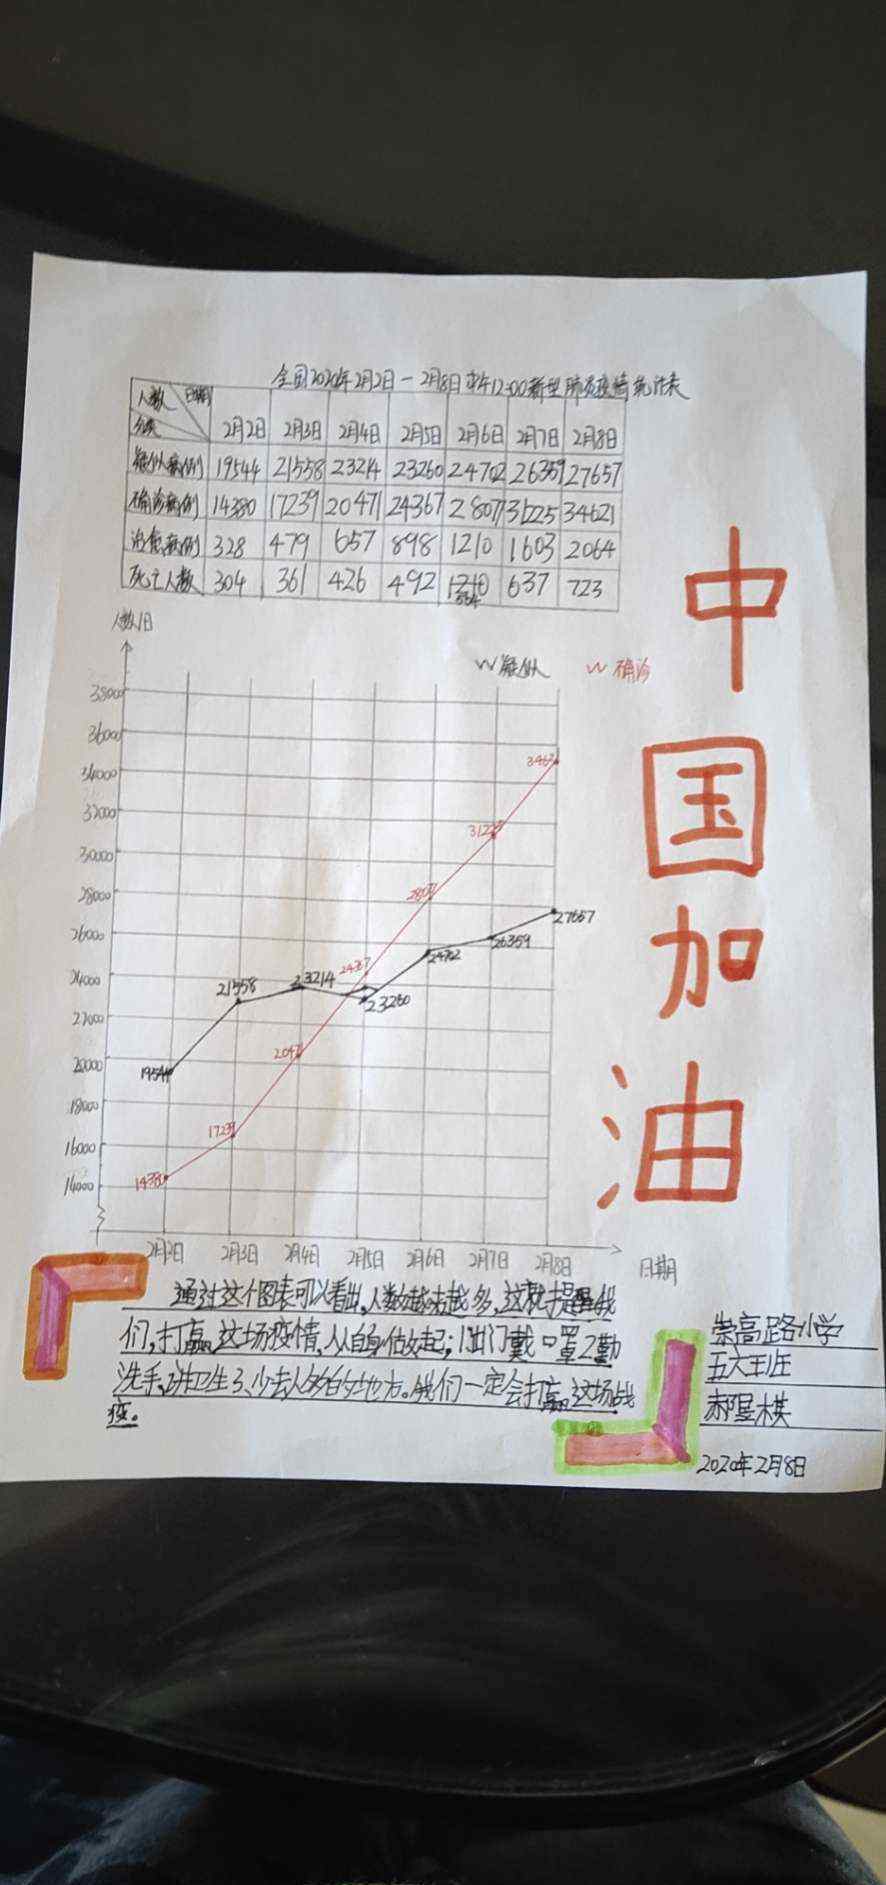 全国2020年2月2日—2月8日中午12:00新型肺炎疫情统计表
人数 日期
分类 2月2日 2月3日 2月4日 2月5日 2月6日 2月7日 2月8日
疑似病例 19544 21558 23214 23260 24702 26359 27657
确诊病例 14380 17239 20471 24367 2807 31225 34621
治愈病例 328 479 657 898 1210 1603 2064
死亡人数 304 361 426 492 637 723
人数/日
疑似 确诊
38000
36000
34000
32000
30000
28000
26000
24000
22000
20000
18000
16000
14000
19544 21558 23214 23260 24702 26359 27657
14380 17239 2047 24367 2807 3122 3462
2月2日 2月3日 2月4日 2月5日 2月6日 2月7日 2月8日 日期
中
国
加
油
通过这个图表可以看出,人数越来越多,这就提醒我
们,打赢这场疫情,从自身做起;1.出门戴口罩2勤
洗手,讲卫生3、少去人多的地方。我们一定会打赢这场战
疫。
崇高路小学
五六班
郝星棋
2020年2月8日